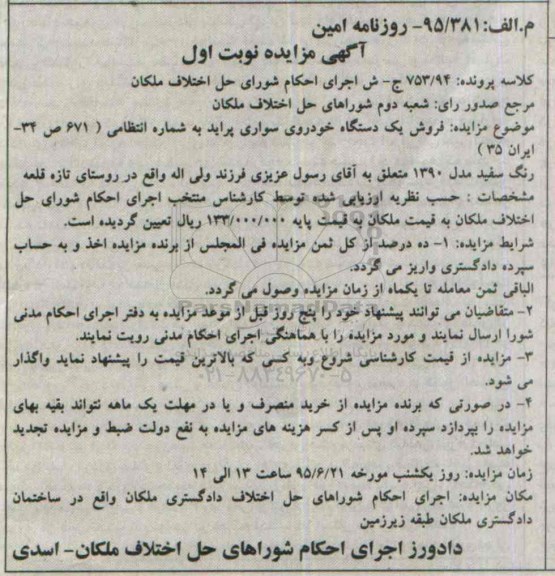 م.الف:۹۵/۳۸۱- روزنامه امین
آگهی مزایده نوبت اول
کلاسه پرونده: ۷۵۳/۹۴ ج- ش اجرای احکام شورای حل اختلاف ملکان
مرجع صدور رای: شعبه دوم شوراهای حل اختلاف ملکان
موضوع مزایده: فروش یک دستگاه خودروی سواری پراید به شماره انتظامی ( ۶۷۱ ص ۳۴-
ایران ۳۵ )
رنگ سفید مدل ۱۳۹۰ متعلق به آقای رسول عزیزی فرزند ولی اله واقع در روستای تازه قلعه
مشخصات : حسب نظریه ارزیابی شده توسط کارشناس منتخب اجرای احکام شورای حل
اختلاف ملکان به قیمت ملکان به قیمت پایه ۱۳۳/۰۰۰/۰۰۰ ریال تعیین گردیده است.
شرایط مزایده: ۱- ده درصد از کل ثمن مزایده فی المجلس از برنده مزایده اخذ و به حساب
سپرده دادگستری واریز می گردد.
الباقی ثمن معامله تا یکماه از زمان مزایده وصول می گردد.
۲- متقاضیان می توانند پیشنهاد خود را پنج روز قبل از موعد مزایده به دفتر اجرای احکام مدنی
شورا ارسال نمایند و مورد مزایده را با هماهنگی اجرای احکام مدنی رویت نمایند.
۳- مزایده از قیمت کارشناسی شروع وبه کسی که بالاترین قیمت را پیشنهاد نماید واگذار
می شود.
۴- در صورتی که برنده مزایده از خرید منصرف و یا در مهلت یک ماهه نتواند بقیه بهای
مزایده را بپردازد سپرده او پس از کسر هزینه های مزایده به نفع دولت ضبط و مزایده تجدید
خواهد شد.
زمان مزایده: روز یکشنبه مورخه ۹۵/۶/۲۱ ساعت ۱۳ الی ۱۴
مکان مزایده: اجرای احکام شوراهای حل اختلاف دادگستری ملکان واقع در ساختمان
دادگستری ملکان طبقه زیرزمین
دادورز اجرای احکام شوراهای حل اختلاف ملکان- اسدی
ParsNamadData
۰۲۱-۸۸۳۴۹۶۷۰-۵